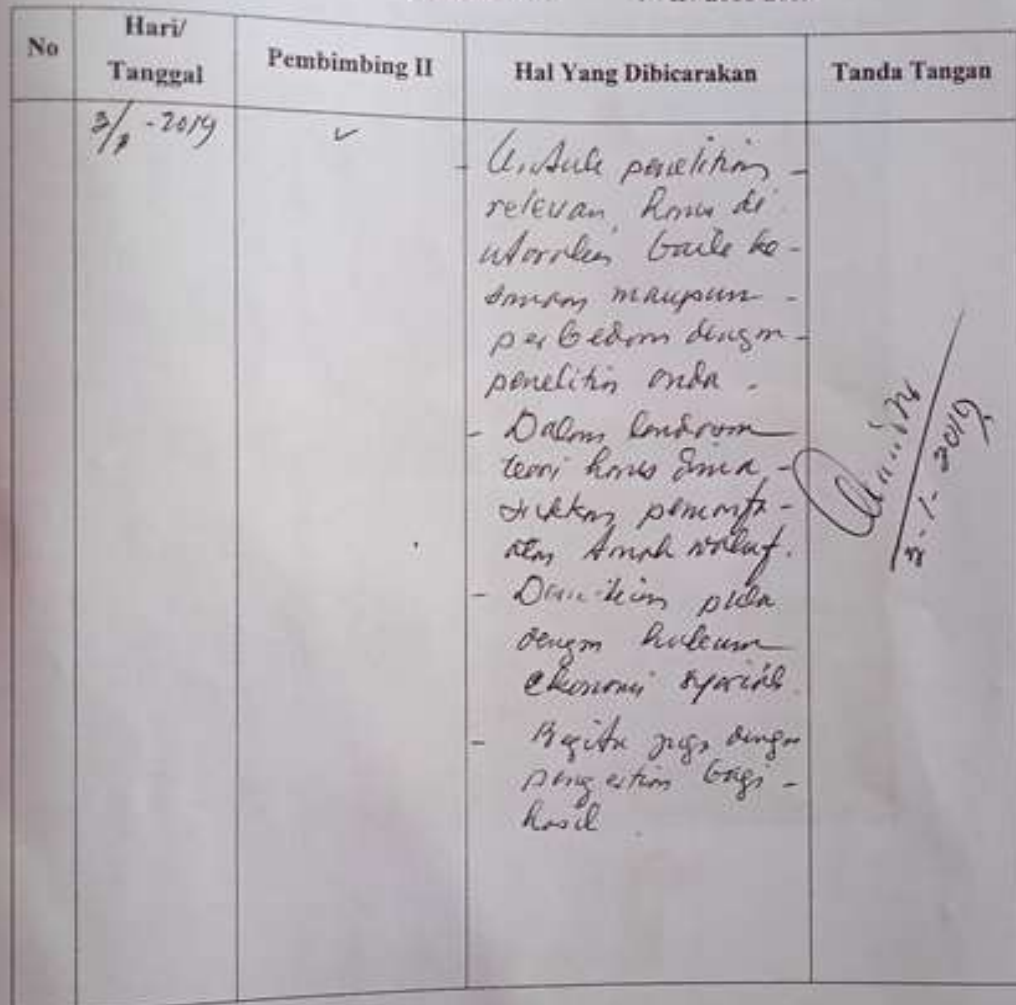 No
Hari/
Tanggal
Pembimbing II
Hal Yang Dibicarakan
Tanda Tangan
3/1 - 2019
✓
- Untuk penelitian
relevan harus di
uraikan baik ke-
samaan maupun
perbedaan dengan
penelitian anda.
- Dalam landasan
teori harus dima-
sukkan pemanfa-
atan tanah wakaf.
- Demikian pula
dengan hukum
ekonomi syariah.
- Begitu juga dengan
pengertian bagi-
hasil
3-1-2019